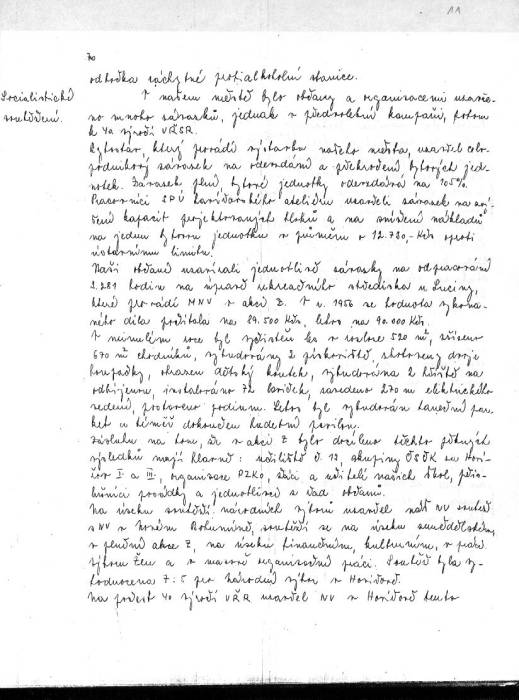 11
70
odbočka záchytné protialkoholní stanice.
Socialistické
soutěžení.
V našem městě bylo občany a organizacemi uzavře-
no mnoho závazků, jednak v předvolební kampani, potom
k 40 výročí VŘSR.
Bytostav, který provádí výstavbu našeho města, uzavřel celo-
podnikový závazek na odevzdání a překročení bytových jed-
notek. Závazek plní, bytové jednotky odevzdává na 105%.
Pracovníci SPÚ havířovského atelieru uzavřeli závazek na zvý-
šení kapacit projektovaných bloků a na snížení nákladů
na jednu bytovou jednotku v průměru o 12.730,- Kčs oproti
ústavnímu limitu.
Naši občané uzavírali jednotlivé závazky na odpracování
2.281 hodin na úpravě rekreačního střediska u Lučiny,
které provádí MNV v akci Z. V r. 1956 se hodnota vykona-
ného díla počítala na 89.500 Kčs, letos na 90.000 Kčs.
V minulém roce byl vyčištěn les v rozloze 520 m², zřízeno
670 m² chodníků, vybudovány 2 pískoviště, zhotoveny dvoje
houpačky, ohrazen dětský koutek, vybudována 2 hřiště na
odbíjenou, instalováno 72 laviček, zavedeno 270 m elektrického
vedení, postaveno podium. Letos byl vybudován taneční par-
ket a téměř dokončen hudební pavilon.
Zásluhu na tom, že v akci Z bylo docíleno těchto pěkných
výsledků mají hlavně: učiliště č. 12, skupiny ČSČK na Haví-
řov I. a III., organizace PZKO, žáci a učitelé našich škol, přís-
lušníci posádky a jednotlivci z řad občanů.
Na úseku soutěží národních výborů uzavřel náš NV soutěž
s NV v Novém Bohumíně, soutěží se na úseku zemědělském,
v plnění akce Z, na úseku finančním, kulturním, v práci
výboru žen a v masově organizační práci. Soutěž byla vy-
hodnocena 7:5 pro národní výbor v Havířově.
Na počest 40 výročí VŘR uzavřel NV v Havířově tento